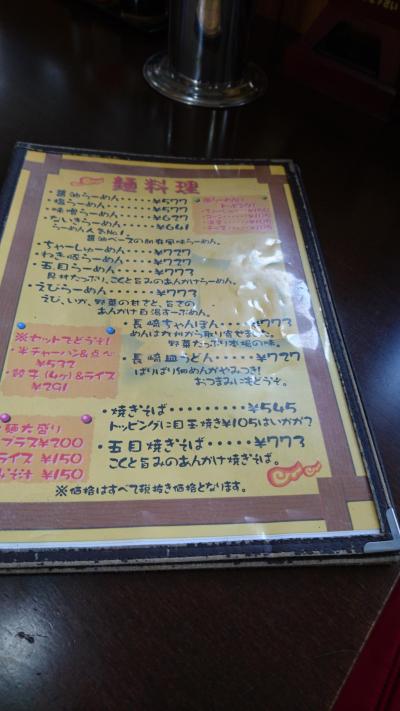 麺料理
・醤油らーめん・・・・・¥577
・塩らーめん・・・・・・¥577
・味噌らーめん・・・・・¥627
・だいきらーめん・・・・¥641
らーめん人気No.1
醤油ベースの豚骨風味らーめん。
トッピング!
・ちゃーしゅーめん・・・・¥727
・ねぎ豚らーめん・・・・¥727
・五目らーめん・・・・・¥773
具材たっぷり、こくと旨みのあんかけらーめん。
・えびらーめん・・・・・¥773
えび、いか、野菜の甘さと、旨さの
あんかけ白湯すーぷめん。
・長崎ちゃんぽん・・・・・¥773
めんは九州から取り寄せました。
野菜たっぷり本場の味。
※セットでどうぞ!
・半チャーハン&点心
¥532
・餃子(4ヶ)&ライス
¥291
・長崎皿うどん・・・・・¥727
ぱりぱり細めんがやみつき!
おつまみにもどうぞ。
・焼きそば・・・・・・・・・¥545
トッピングに目玉焼き¥105はいかが?
・五目焼きそば・・・・・¥773
こくと旨みのあんかけ焼きそば。
麺大盛り
プラス¥200
ライス ¥150
みそ汁 ¥150
※価格はすべて税抜き価格となります。